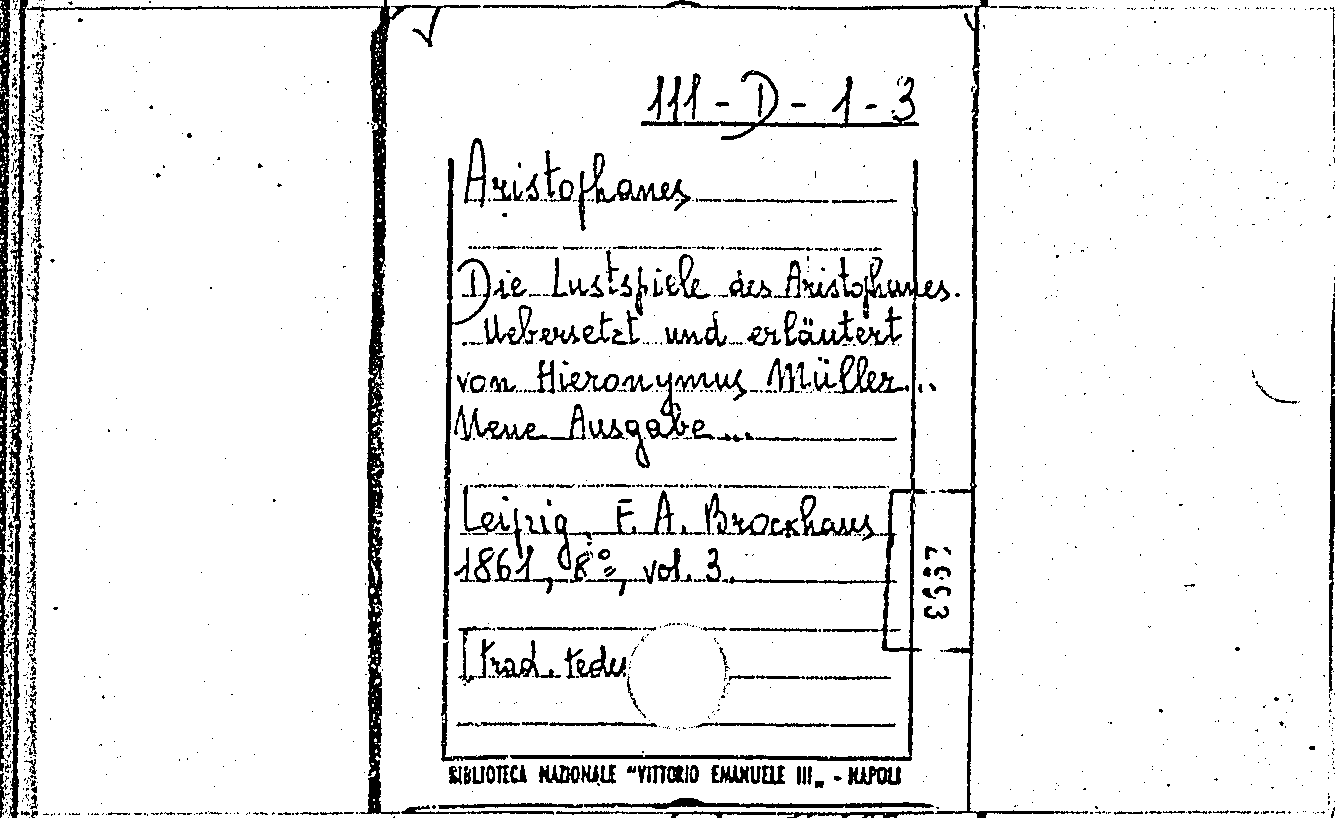 111-D-1-3
Aristophanes
Die Lustspiele des Aristophanes.
Uebersetzt und erläutert
von Hieronymus Müller...
Neue Ausgabe...
Leipzig, F. A. Brockhaus
1861, 8°, vol. 3.
[trad. tedes
BIBLIOTECA NAZIONALE "VITTORIO EMANUELE III„ - NAPOLI